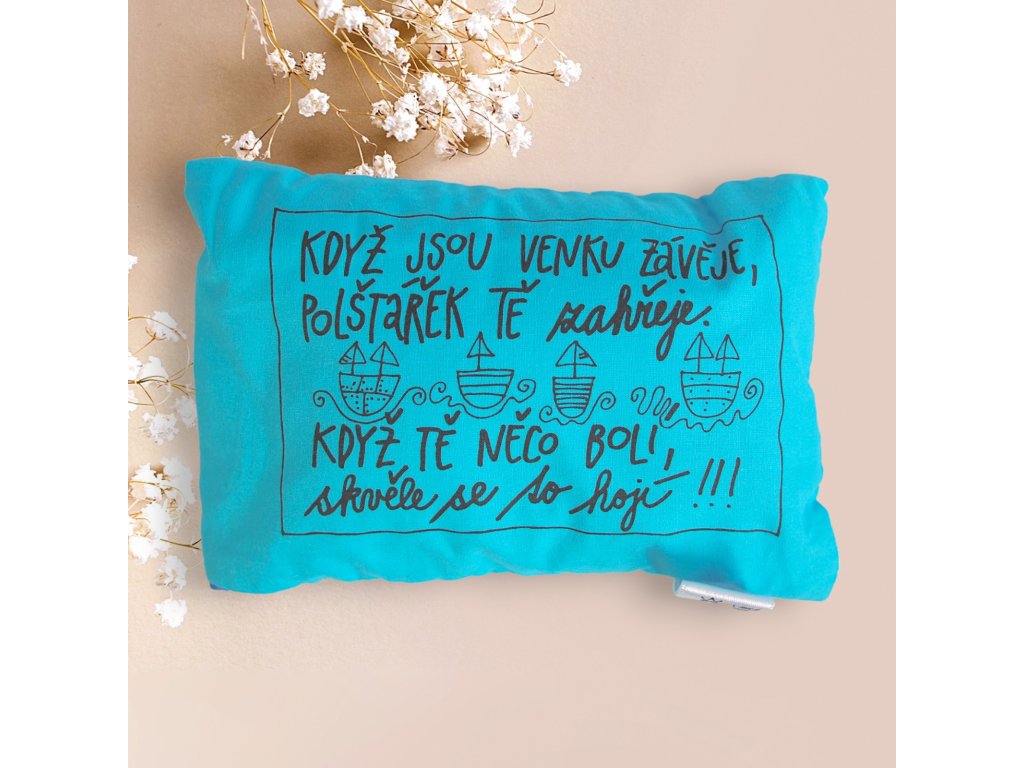 KDYŽ JSOU VENKU ZáVĚJE,
POLŠTaŘEK TĚ zahřeje.
KDYŽ TĚ NĚCO BOLÍ,
skvěle se to hojí !!!